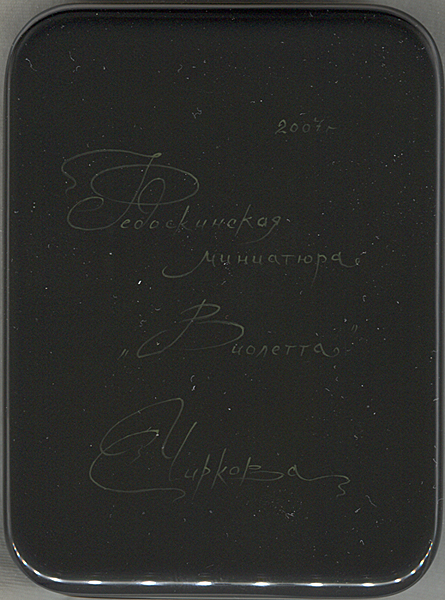 2007г
Федоскинская
миниатюра.
„Виолетта"
Чиркова